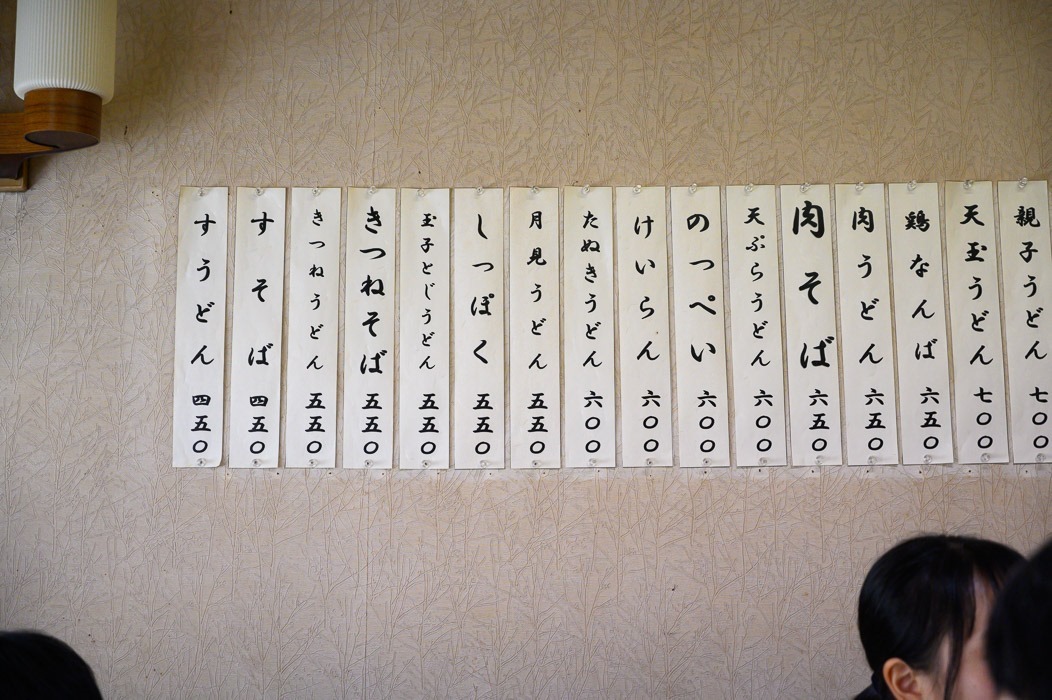 親子うどん 七〇〇
天玉うどん 七〇〇
鶏なんば 六五〇
肉うどん 六五〇
肉そば 六五〇
天ぷらうどん 六〇〇
のっぺい 六〇〇
けいらん 六〇〇
たぬきうどん 六〇〇
月見うどん 五五〇
しっぽく 五五〇
玉子とじうどん 五五〇
きつねそば 五五〇
きつねうどん 五五〇
すそば 四五〇
すうどん 四五〇